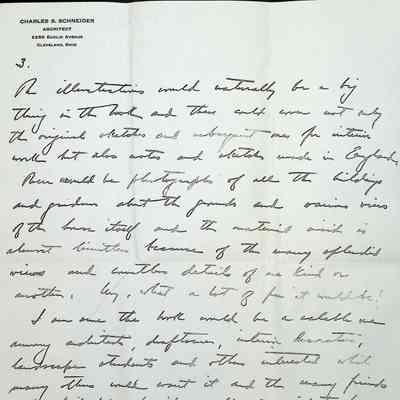 CHARLES S. SCHNEIDER
ARCHITECT
CLEVELAND, OHIO
3.
The illustrations would naturally be a big
thing in the book and these could cover not only
the original sketches and subsequent ones for interior
work but also notes and sketches made in England.
There would be photographs of all the buildings
and gardens about the grounds and various views
of the house itself and the material which is
almost limitless because of the many splendid
views and countless details of one kind or
another. My, what a lot of fun it would be!
I am sure the book would be a valuable one
among architects, draftsmen, interior decorators,
landscape students and others interested while
many others would want it and the many friends